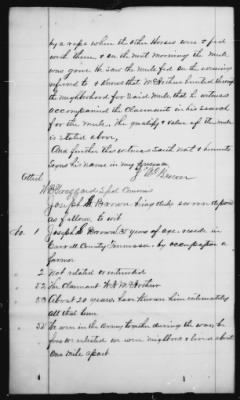 by a rope when the other Horses were & fed
with them & on the next morning the mule
was gone. He saw the mule fed on the evening
referred to & knows that McArthur hunted through
the neighborhood for said mule that he witness
accompanied the Claimant in his search
for the mule. The quality & value of the mule
is stated above,
And further this witness saith not & hereunto
signs his name in my presence
Attest
Spcl Comms
Joseph H Brown being duly sworn deposes
as follows to wit
No. 1 Joseph H Brown 35 years of age reside in
Carroll County Tennessee by occupation a
farmer
2 Not related or interested
52 The Claimant W A McArthur
53 About 20 years have known him intimately
all that time
He were in the Army together during the war, he
first enlisted we were neighbors & lived about
One mile apart